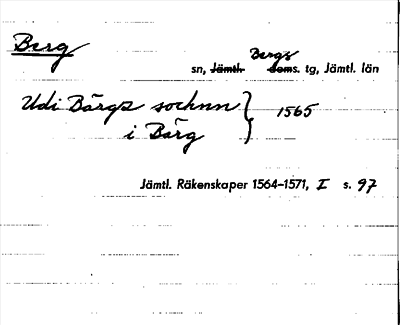 Berg
Bergs
sn, Jämtl. doms. tg, Jämtl. län
Udi Bärgz sochnn } 1565
i Bärg
Jämtl. Räkenskaper 1564–1571, I s. 97